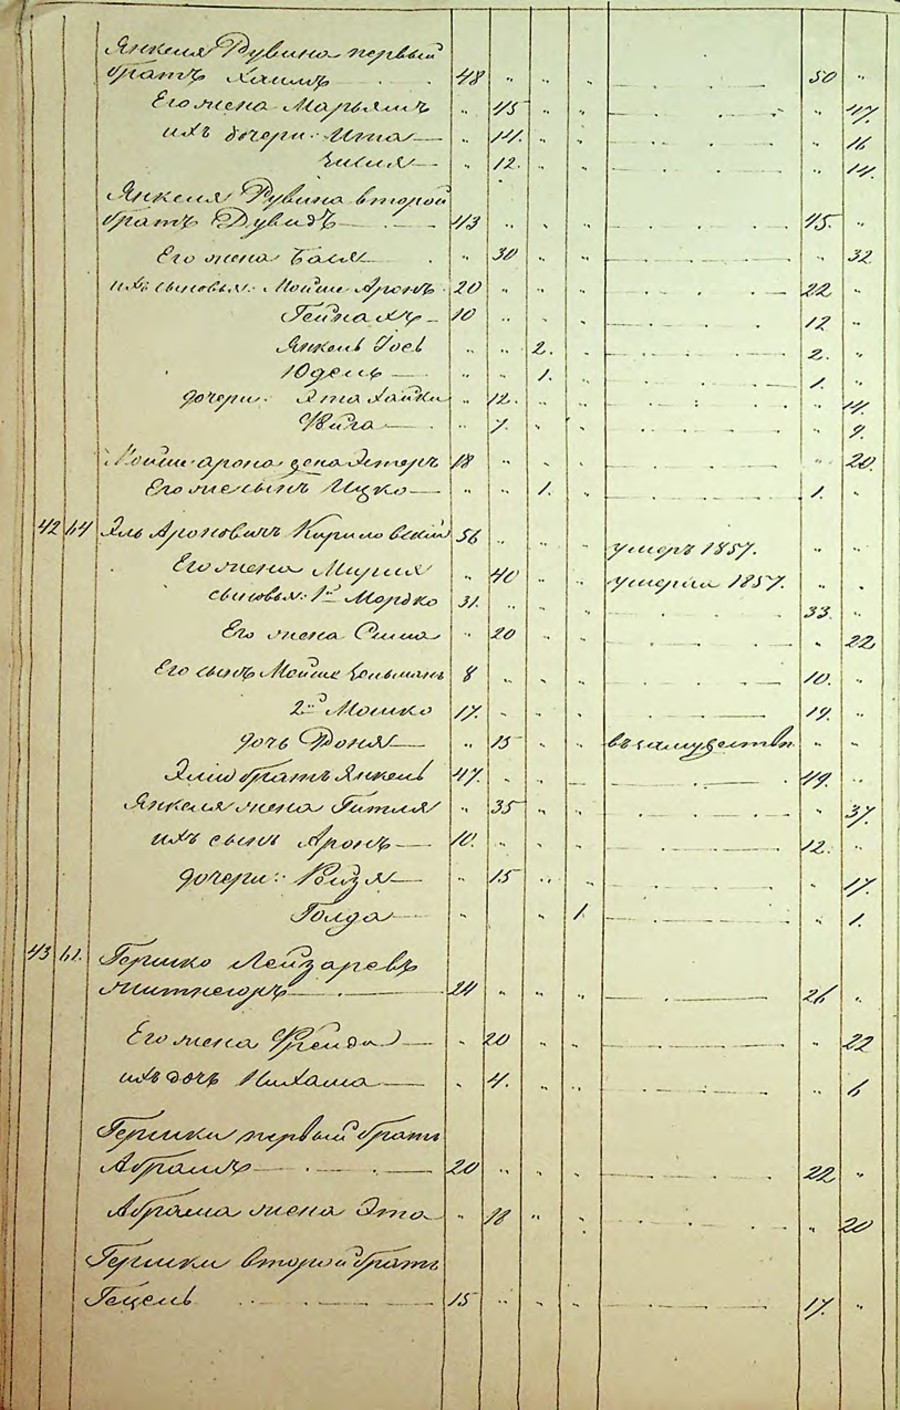 Янкеля Рувина первый
братъ Хаимъ 48 " " " 50 "
Его жена Марьямъ " 45 " " " 47.
ихъ дочери: Ита " 14. " " " 16
Цивія " 12. " " " 14.
Янкеля Рувина второй
братъ Дувидъ 43 " " " 45. "
Его жена Бася " 30 " " " 32
ихъ сыновья: Мойше Аронъ 20 " " " 22 "
Гейнахъ 10 " " " 12 "
Янкель Іось " " 2. " 2. "
Юдель " " 1. " 1. "
дочери: Эта Хайка " 12. " " " 14.
Фейга " 7. " " " 9.
Мойше арона жена Эстеръ 18 " " " " 20.
Его же сынъ Ицко " " 1. " 1. "
42 64 Эль Ароновичъ Кириловскій 56 " " " умеръ 1857. " "
Его жена Мирля " 40 " " умерла 1857. " "
сыновья: 1й Мордко 31. " " " 33. "
Его жена Сима " 20 " " " 22
Его сынъ Мойше Зельманъ 8 " " " 10. "
2й Мошко 17. " " " 19. "
дочь Роня " 15 " " въ замужествѣ " "
Элію братъ Янкель 47. " " 49. "
Янкеля жена Гитля " 35 " " " 37.
ихъ сынъ Аронъ 10. " " " 12. "
дочери: Ройзя " 15 " " " 17.
Голда " " 1. " 1.
43 Гершко Лейзаревъ
Житнегоръ 24 " " " 26 "
Его жена Фрейда " 20 " " " 22
ихъ дочь Нихама " 4. " " " 6
Гершки первый братъ
Абрамъ 20 " " " 22 "
Абрама жена Эта " 18 " " " 20
Гершки второй братъ
Гецель 15 " " " 17. "